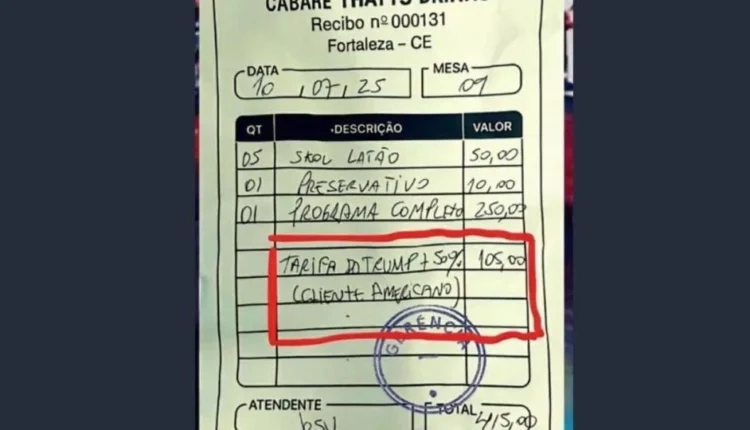 CABARÉ THATTS DRINKS
Recibo nº 000131
Fortaleza – CE
DATA
10 , 07 , 25
MESA
09
QT DESCRIÇÃO VALOR
05 SKOL LATÃO 50,00
01 PRESERVATIVO 10,00
01 PROGRAMA COMPLETO 250,00
TARIFA DO TRUMP + 50% 105,00
(CLIENTE AMERICANO)
GERÊNCIA
ATENDENTE
TOTAL 415,00